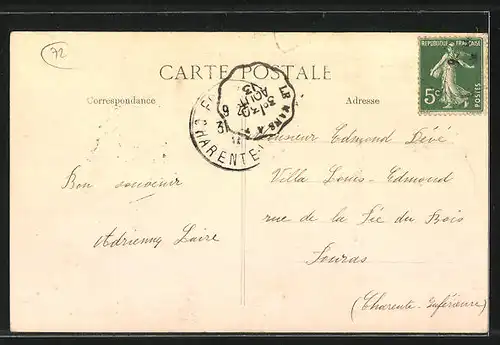 72
CARTE POSTALE
REPUBLIQUE FRANÇAISE
5c
POSTES
Correspondance
Adresse
LE MANS A
3E 1 30
AOUT
13
CHARENTE
Monsieur Edmond Dévé
Villa Louis-Edmond
rue de la Fée du Bois
Fouras
(Charente-Inférieure)
Bon souvenir
Adrienne Laire